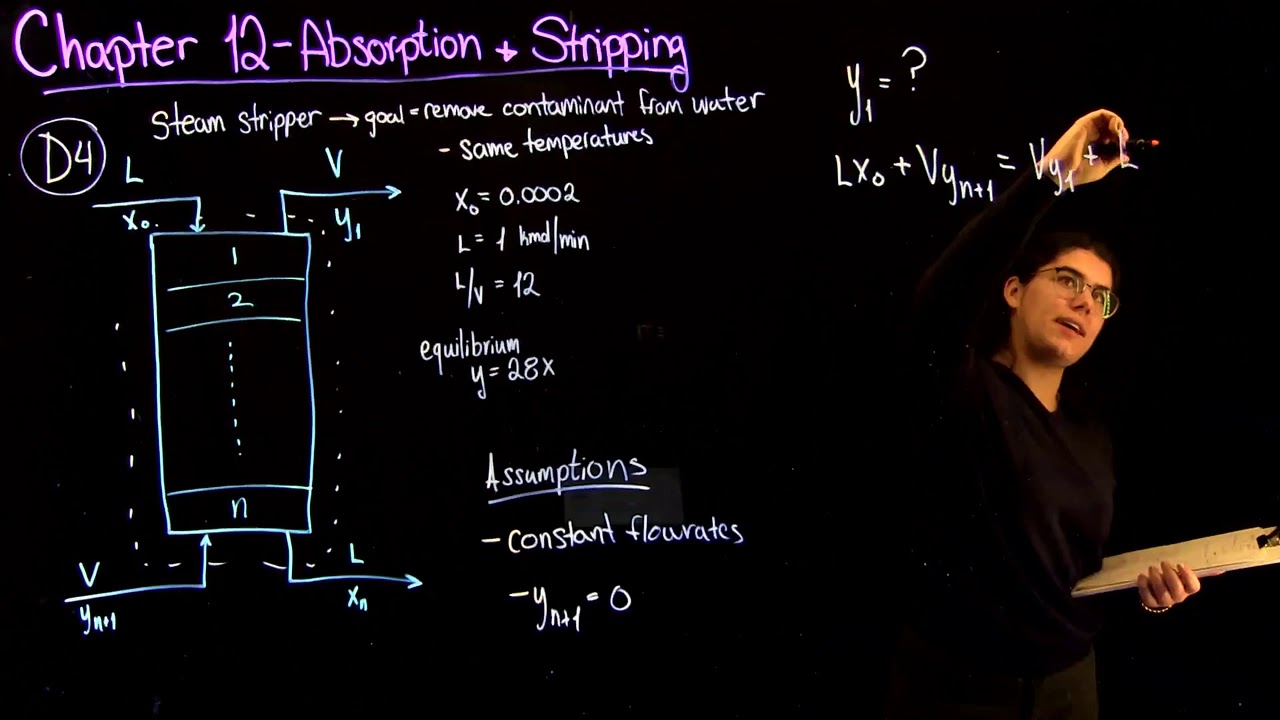 Chapter 12-Absorption + Stripping
D4
Steam stripper → goal = remove contaminant from water
- same temperatures
L
V
x₀
y₁
1
2
n
V
yₙ₊₁
L
xₙ
x₀ = 0.0002
L = 1 kmol/min
L/V = 12
equilibrium
y = 28x
Assumptions
- constant flowrates
- yₙ₊₁ = 0
y₁ = ?
Lx₀ + Vyₙ₊₁ = Vy₁ + L